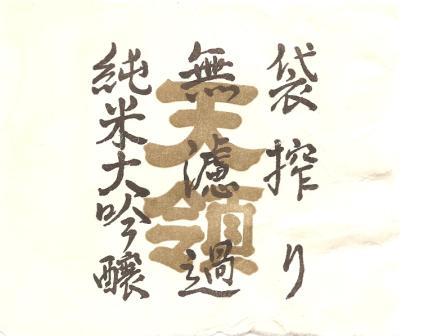 袋搾り
無濾過
純米大吟醸
天領